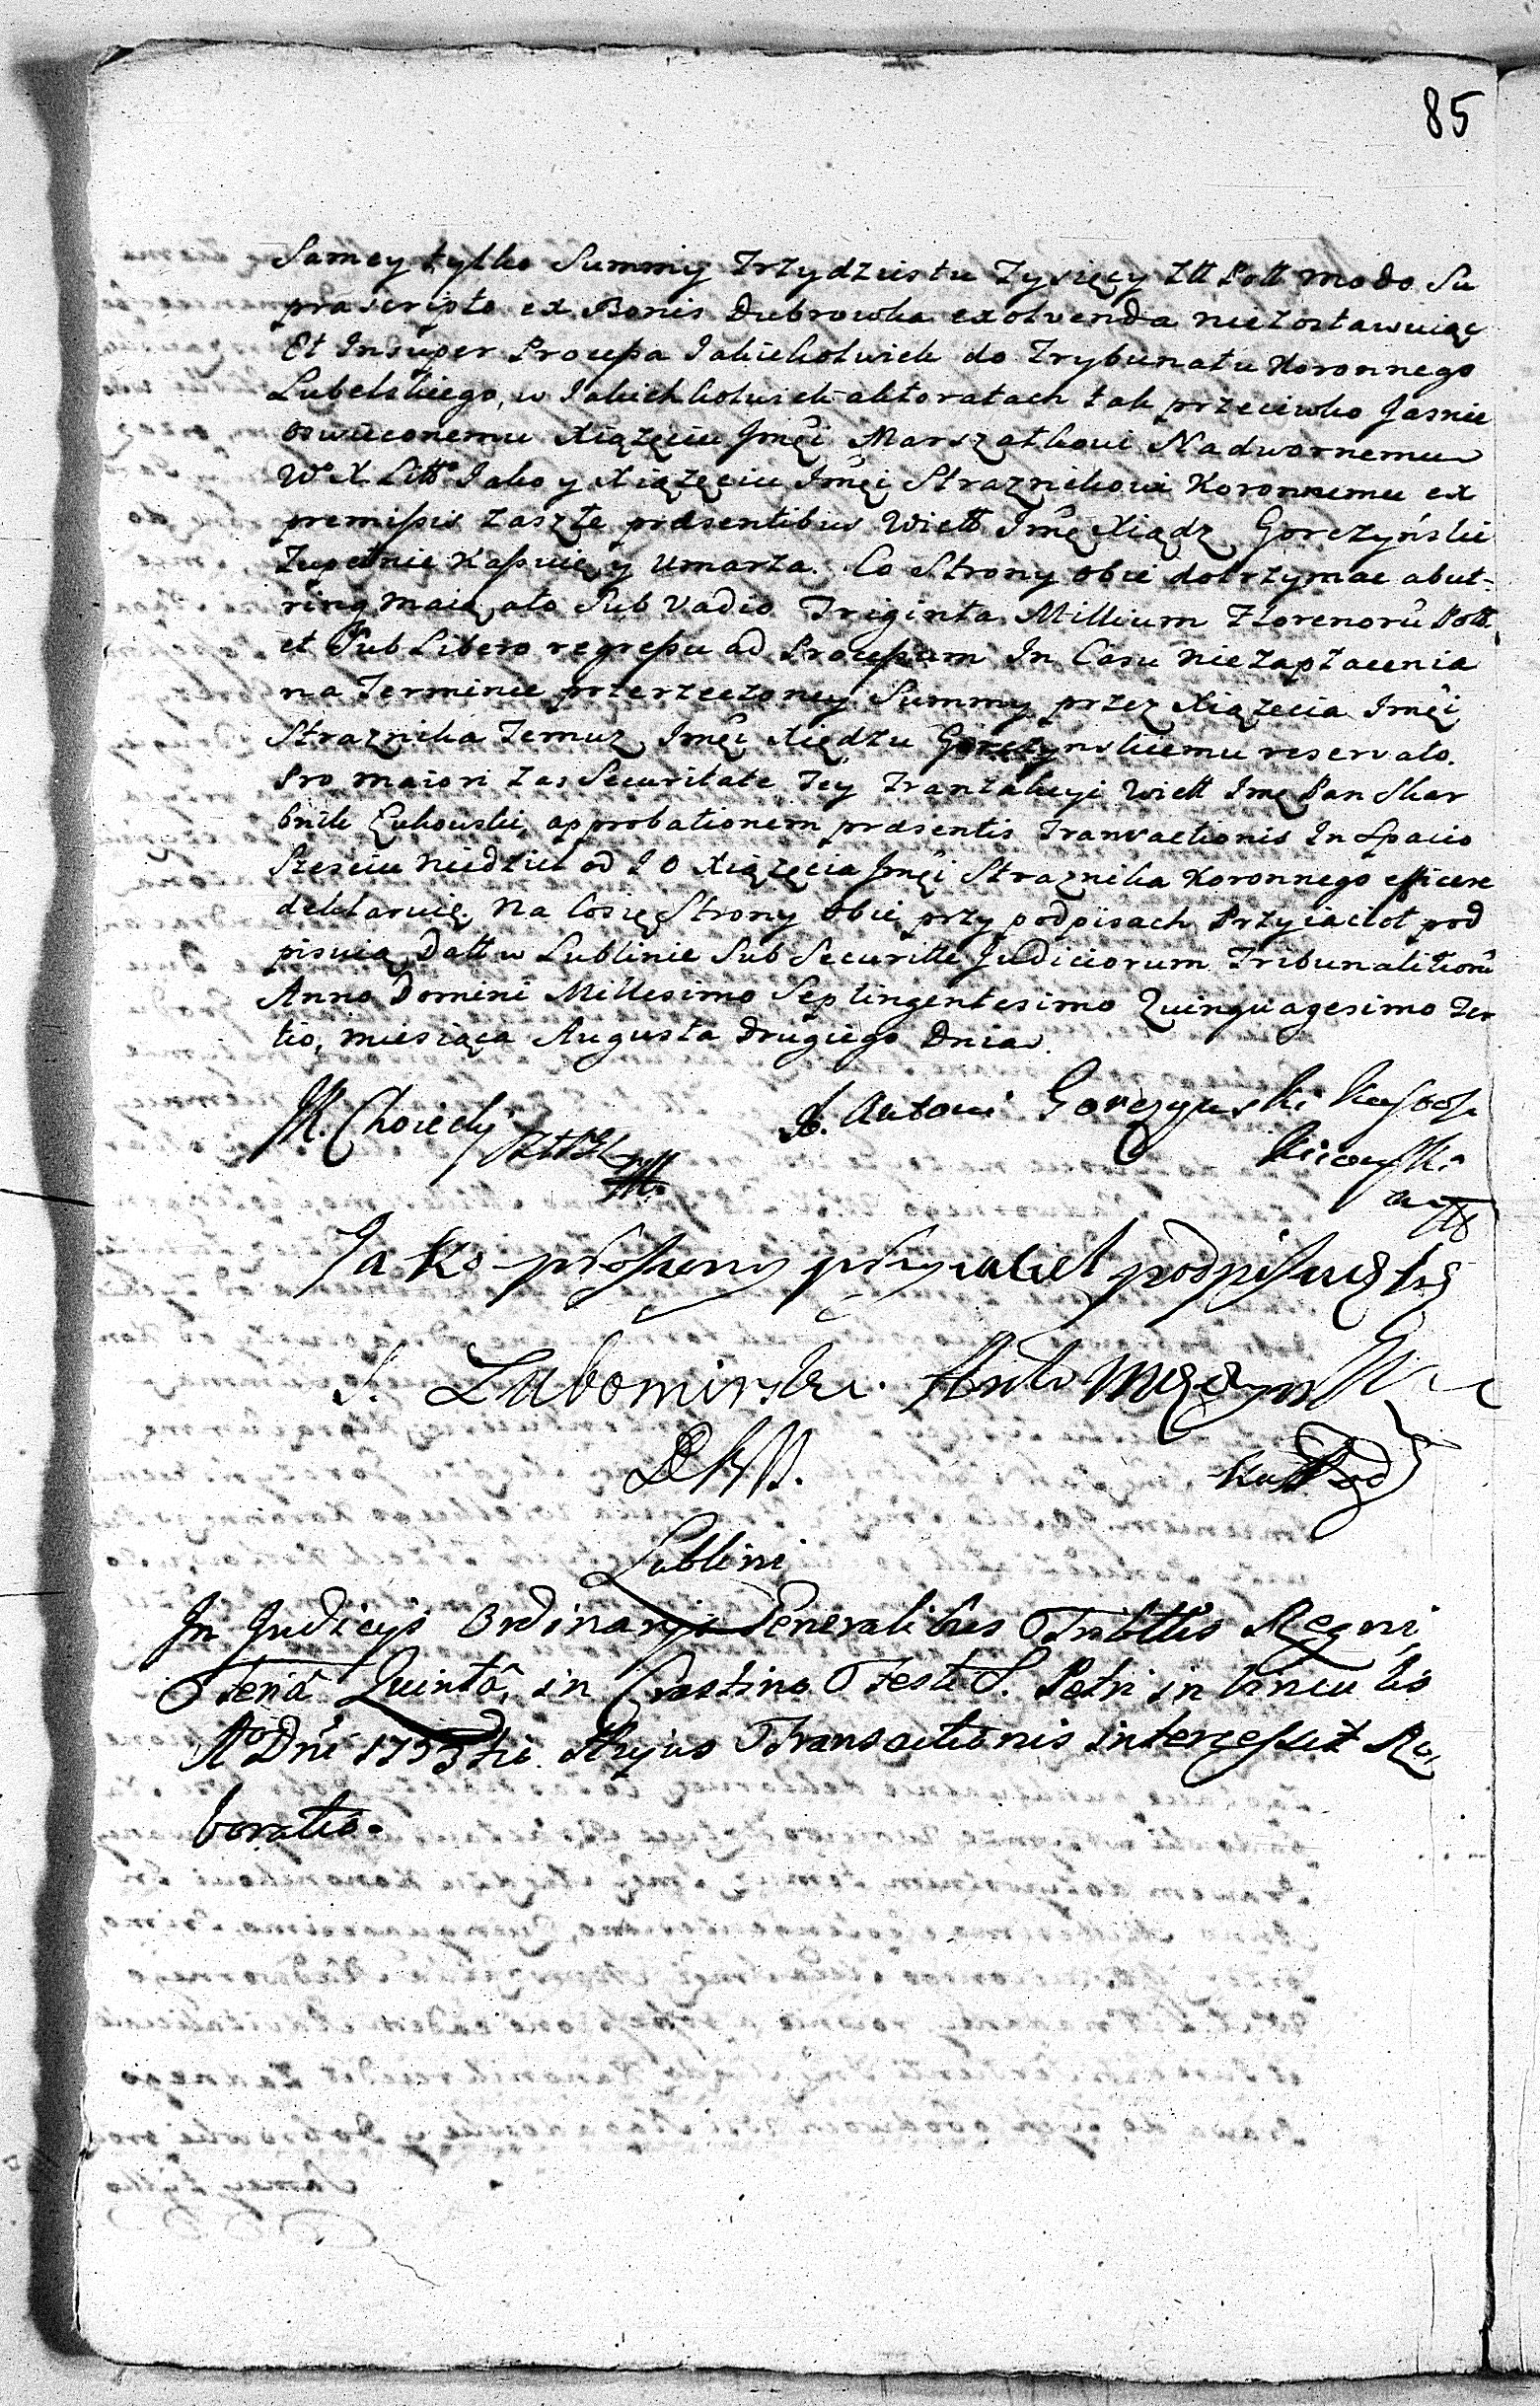 85
Samey tylko Summy Trzydziestu Tysięcy Złł Poll modo Su
prascripto ex Bonis Dubrowka exolvenda niezostawuiąc
Et Insuper Processa Jakiekolwiek do Trybunału Koronnego
Lubelskiego, w Jakichkolwiek aktoratach tak przeciwko Jasnie
Oswieconemu Xiążęciu Jmći Marszałkowi Nadwornemu
W° X Litt° Jako y Xiążęciu Jmći Straznikowi Koronnemu ex
premissis zaszłe præsentibus Wiell Jmć Xiądz Gorczyński
Zupełnie Kassuie y Umarza. Co Strony obie dotrzymac abut-
rinq maią, a to Sub Vadio Triginta Millium Florenorũ Poll.
et Sub Libero regressu ad Processum In Casu niezapłacenia
na Terminie przerzeczoney Summy przez Xiążecia Jmći
Straznika Temuz Jmći Xiędzu Gorczynskiemu reservato.
Pro maiori zas Securitate Tey Tranzakcyi Wiell Jmć Pan Skar
bnik Łukowski, approbationem præsentis Transactionis In Spacio
Szesciu Niedziel od J O Xiążęcia Jmći Straznika Koronnego efficere
deklaruie. Na Co się Strony obie przy podpisach Przyiacioł pod
pisuią, Datt w Lublinie Sub Securitte Judiciorum Tribunalitiorũ
Anno Domini Millesimo Septingentesimo Quinquagesimo Ter
tio, miesiąca Augusta Drugiego Dnia.
M. Choiecki
X. Antoni Gorczynski
Kiiowski
Jako proszony przyiaciel podpisuię się
S. Lubomirski. Anto
Lublini
In Judicijs Ordinarijs Generalibus Tribttlis Regni
Feria Quinta, in Crastino Festi S. Petri in Vinculis
A° Dni 1753tio. Hujus Transactionis intercessit Ro,
boratio.